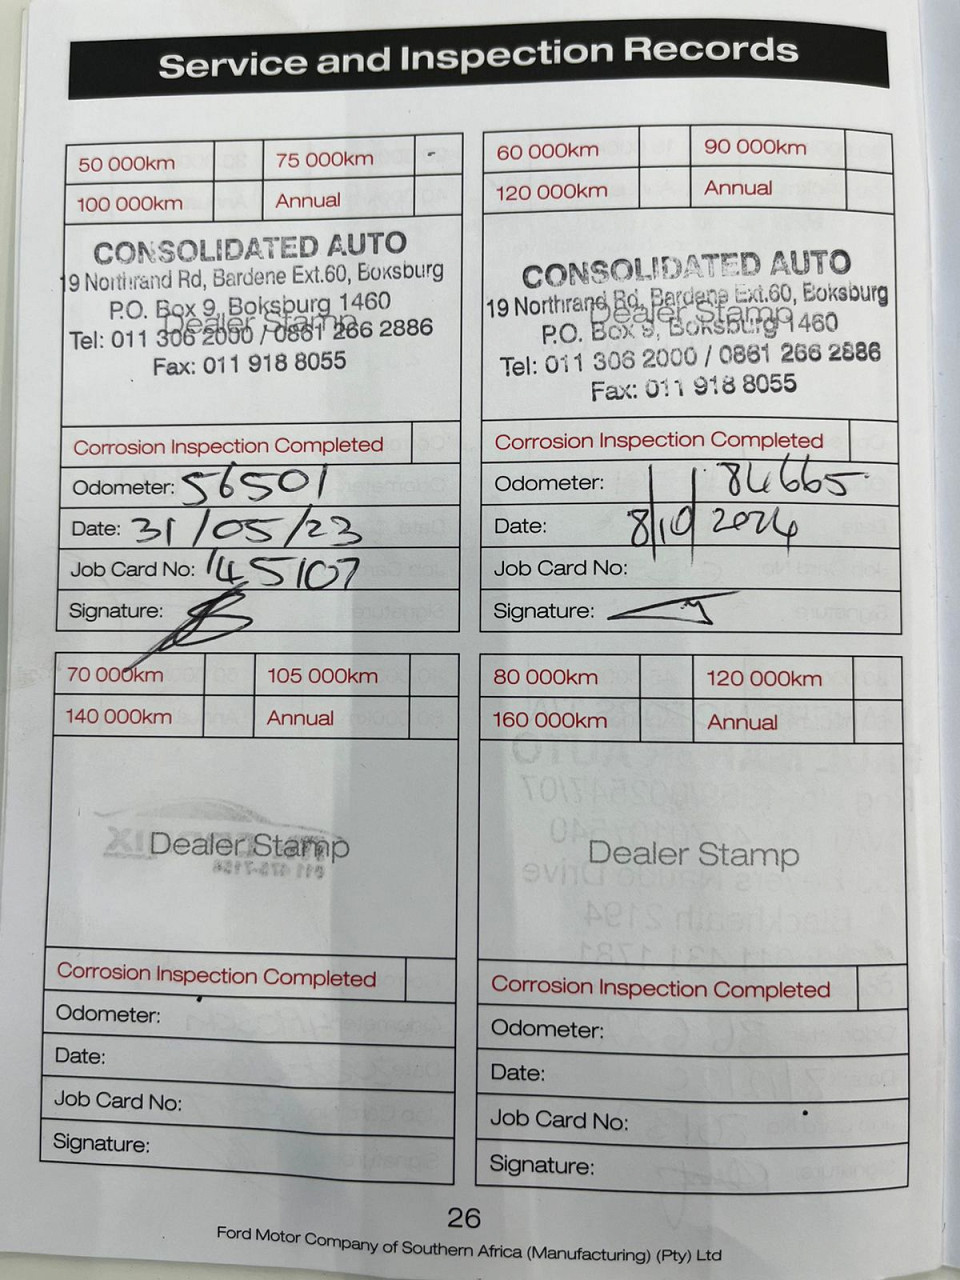 Service and Inspection Records
50 000km 75 000km
100 000km Annual
CONSOLIDATED AUTO
19 Northrand Rd, Bardene Ext.60, Boksburg
P.O. Box 9, Boksburg 1460
Dealer Stamp
Tel: 011 306 2000 / 0861 266 2886
Fax: 011 918 8055
Corrosion Inspection Completed
Odometer: 56501
Date: 31/05/23
Job Card No: 145107
Signature:
60 000km 90 000km
120 000km Annual
CONSOLIDATED AUTO
19 Northrand Rd, Bardene Ext.60, Boksburg
Dealer Stamp
P.O. Box 9, Boksburg 1460
Tel: 011 306 2000 / 0861 266 2886
Fax: 011 918 8055
Corrosion Inspection Completed
Odometer: 84665
Date: 8/10/2024
Job Card No:
Signature:
70 000km 105 000km
140 000km Annual
Dealer Stamp
Corrosion Inspection Completed
Odometer:
Date:
Job Card No:
Signature:
80 000km 120 000km
160 000km Annual
Dealer Stamp
Corrosion Inspection Completed
Odometer:
Date:
Job Card No:
Signature:
26
Ford Motor Company of Southern Africa (Manufacturing) (Pty) Ltd